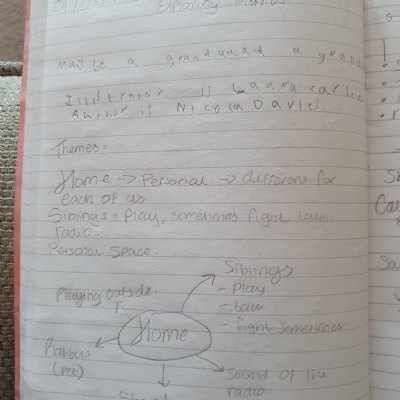 Exploring themes.
maybe a grandad and a grand
Illustrator is Laura Carlin
Author is Nicola Davies.
Themes =
Home → Personal → different for
each of us
Siblings = Play, sometimes fight, law
radio.
Personal space.
Siblings
- Play
- law
- fight sometimes
Playing outside.
Home
Rabbit
(pet)
Sound of the
radio.